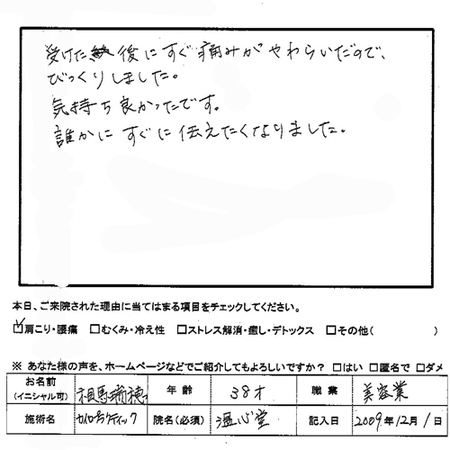 受けた後にすぐ痛みがやわらいだので、
びっくりしました。
気持ち良かったです。
誰かにすぐに伝えたくなりました。
本日、ご来院された理由に当てはまる項目をチェックしてください。
☑肩こり・腰痛 □むくみ・冷え性 □ストレス解消・癒し・デトックス □その他( )
※ あなた様の声を、ホームページなどでご紹介してもよろしいですか？ □はい □匿名で □ダメ
お名前 (イニシャル可) 相馬瑞穂 年齢 38才 職業 美容業
施術名 カイロプラクティック 院名(必須) 温心堂 記入日 2009年12月1日